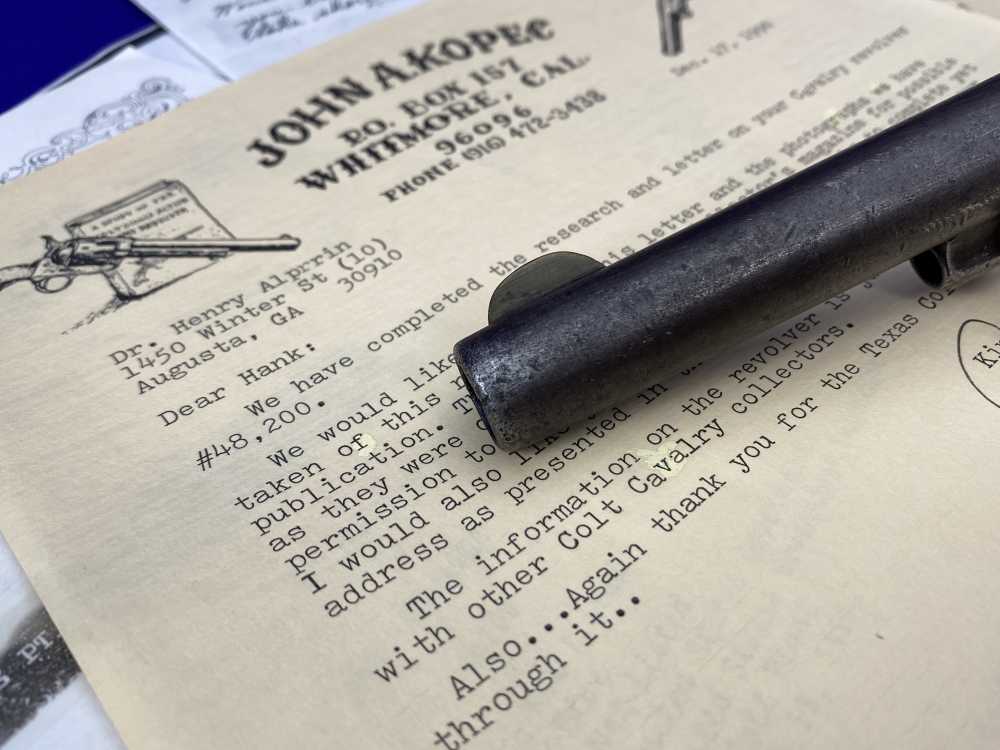 JOHN A. KOPEC
P.O. BOX 157
WHITMORE, CAL.
96096
PHONE (916) 472-3438
Dec. 17, 1990
Dr. Henry Alprrin
1450 Winter St (10)
Augusta, GA 30910
Dear Hank:
We have completed the research and letter on your Cavalry revolver
#48,200.
We would like this letter and the photographs we have
taken of this magazine for possible
publication. complete yet
as they were
permission to
I would also like
address as presented in
The information on the revolver is
with other Colt Cavalry collectors.
Also...Again thank you for the Texas
through it..
PT